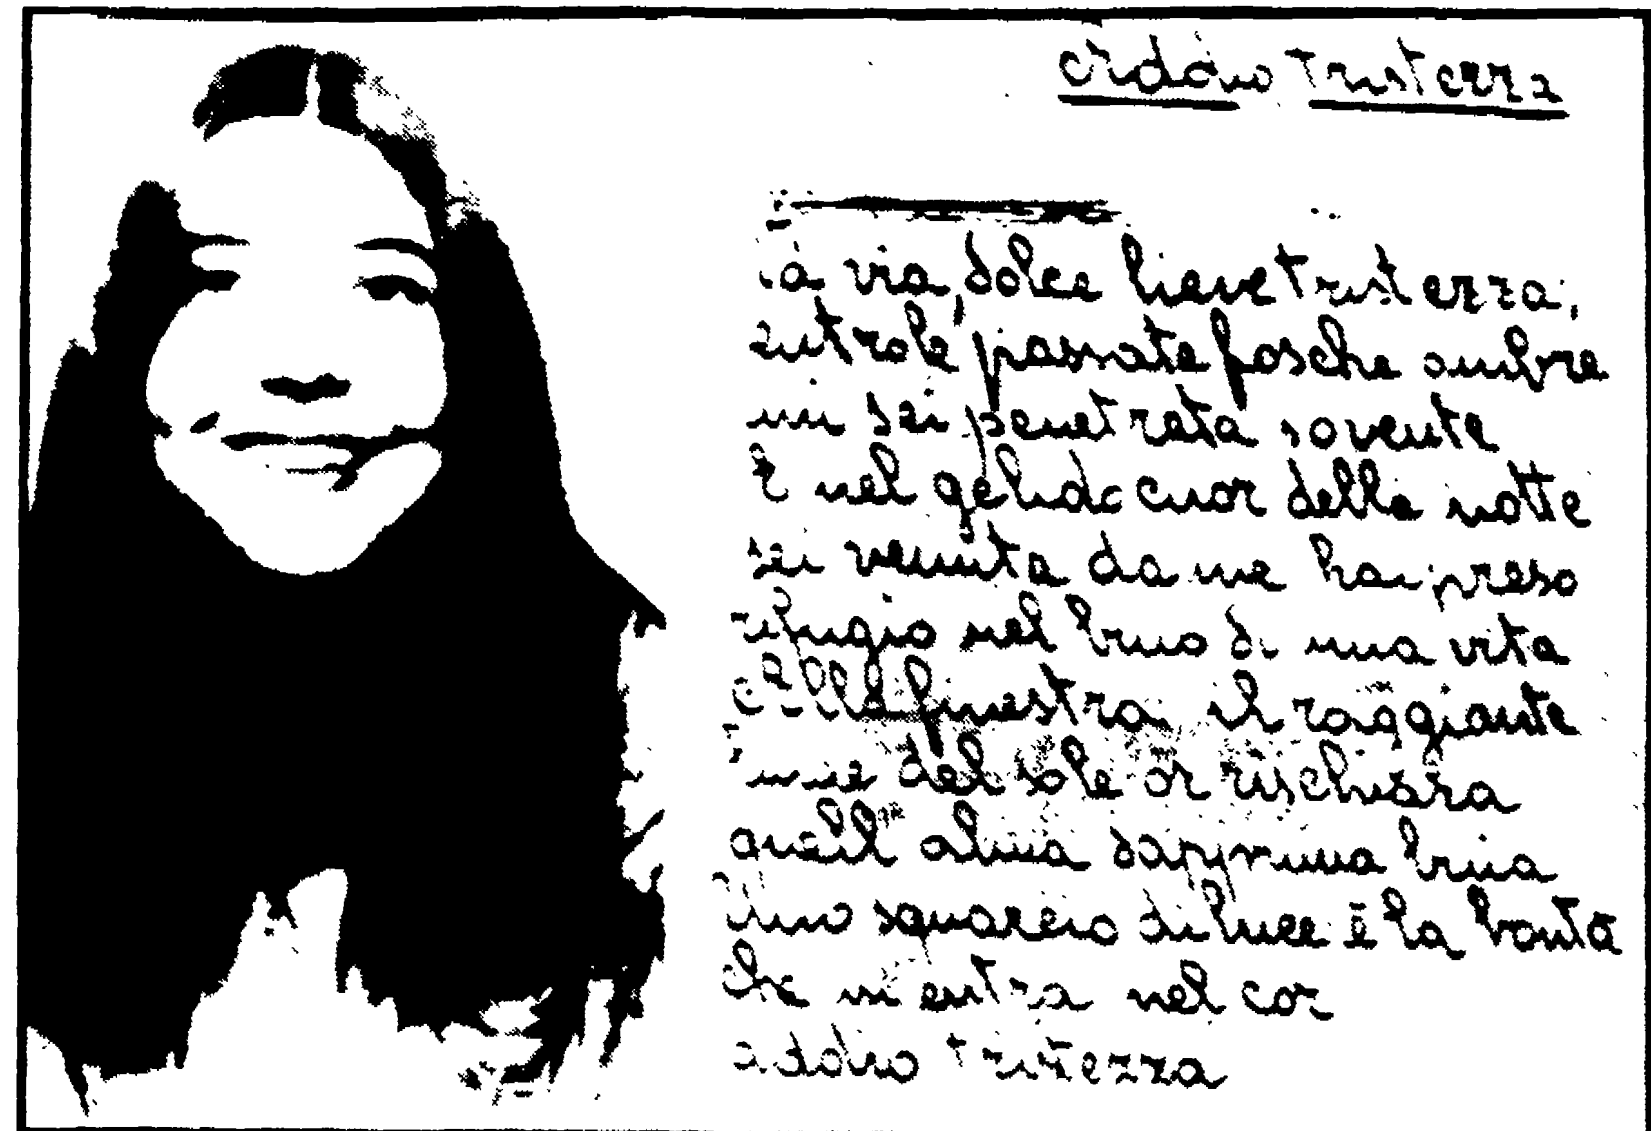 Addio Tristezza
và via, dolce lieve tristezza,
entro le passate fosche ombre
mi sei penetrata sovente
E nel gelido cuor della notte
sei venuta da me hai preso
rifugio nel buio di una vita
dalla finestra il raggiante
lume del sole or rischiara
quell alma dapprima buia
Uno squarcio di luce è la bontà
che mi entra nel cor
addio tristezza